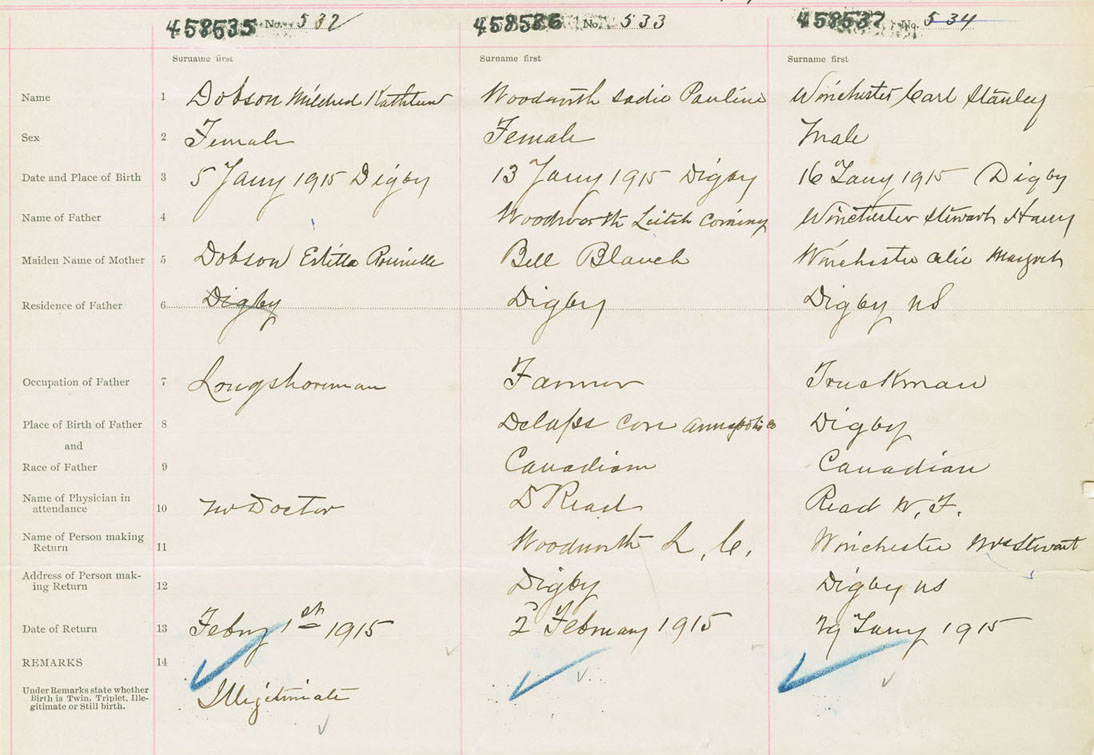 458535 No. 532 458536 No. 533 458537 No. 534
Surname first Surname first Surname first
Name 1 Dobson Mildred Kathleen Woodworth Sadie Pauline Winchester Carl Stanley
Sex 2 Female Female Male
Date and Place of Birth 3 5 Jany 1915 Digby 13 Jany 1915 Digby 16 Jany 1915 Digby
Name of Father 4 Woodworth Winchester Stewart Harry
Maiden Name of Mother 5 Dobson Bell Blanch Winchester
Residence of Father 6 Digby Digby Digby NS
Occupation of Father 7 Longshoreman Farmer Truckman
Place of Birth of Father 8 Delaps Cove Annapolis Co Digby
and
Race of Father 9 Canadian Canadian
Name of Physician in
attendance 10 no Doctor D Read Read W. F.
Name of Person making
Return 11 Woodworth L. C. Winchester Stewart
Address of Person mak-
ing Return 12 Digby Digby NS
Date of Return 13 Febry 1st 1915 2 February 1915 29 Jany 1915
REMARKS 14
Under Remarks state whether
Birth is Twin, Triplet, Ille-
gitimate or Still birth. Illegitimate